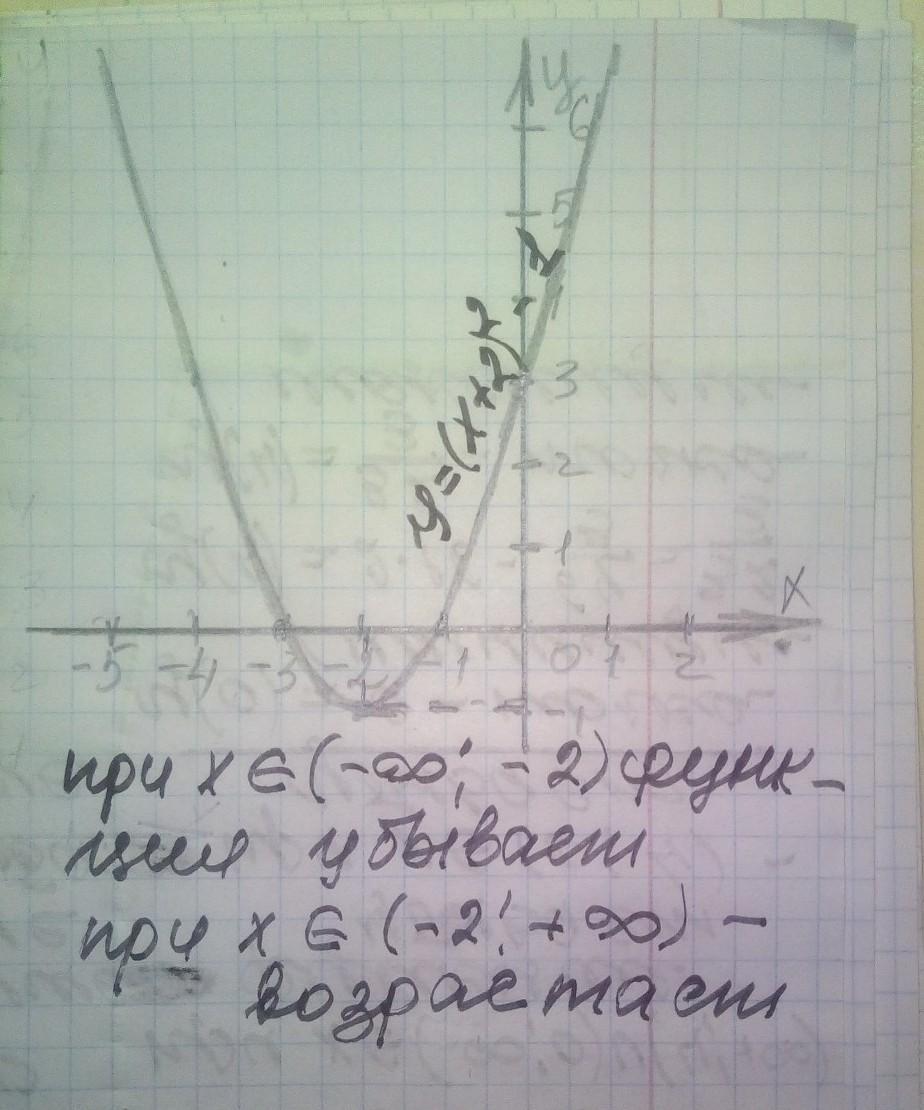 y
6
5
y=(x+2)²-1
3
2
1
x
-5 -4 -3 -2 -1 0 1 2
-1
при x ∈ (-∞; -2) функ-
ция убывает
при x ∈ (-2; +∞) -
возрастает